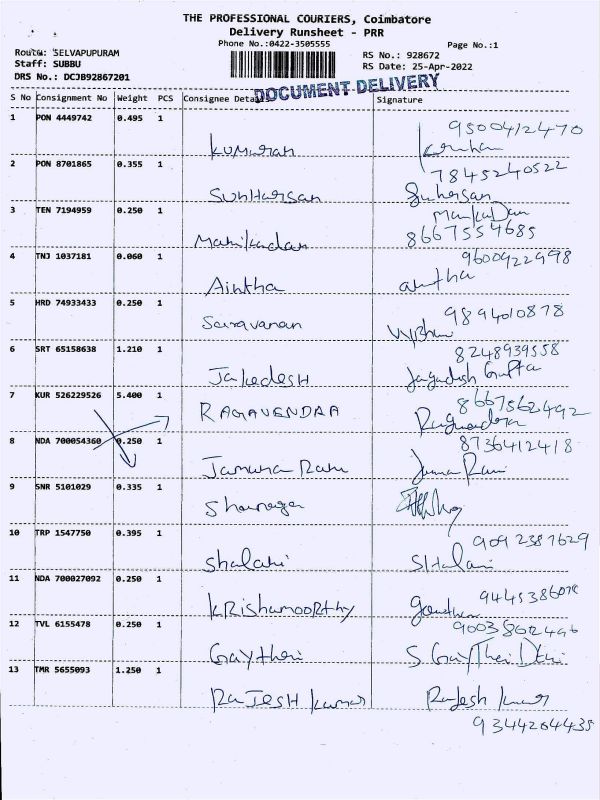 THE PROFESSIONAL COURIERS, Coimbatore
Delivery Runsheet - PRR
Phone No.:0422-3505555
Page No.:1
Route: SELVAPUPURAM
Staff: SUBBU
DRS No.: DCJB92867201
RS No.: 928672
RS Date: 25-Apr-2022
DOCUMENT DELIVERY
S No Consignment No Weight PCS Consignee Details Signature
1 PON 4449742 0.495 1 9500412470
Kumaran
2 PON 8701865 0.355 1 7845240522
SunHarsan Suhersan
3 TEN 7194959 0.250 1
Manikandan 8667554685
4 TNJ 1037181 0.060 1 9600922998
Aintha
5 HRD 74933433 0.250 1 9894010878
Saravanan
6 SRT 65158638 1.210 1 8248939558
Jakedesh Jagadish Gupta
7 KUR 526229526 5.400 1 8667562492
RAGAVENDRA
8 NDA 700054360 0.250 1 8736412418
Jamuna Rani Jamuna Rani
9 SNR 5101029 0.335 1
10 TRP 1547750 0.395 1 9092387629
Shalani SHalani
11 NDA 700027092 0.250 1
KRishamooRthy
12 TVL 6155478 0.250 1
Gaytheri
13 TMR 5655093 1.250 1
RaJESH kumar Rajesh Kumar
9344264435